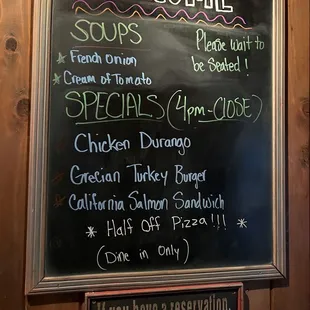 SOUPS
Please wait to
be Seated!
French Onion
Cream of Tomato
SPECIALS (4pm-CLOSE)
Chicken Durango
Grecian Turkey Burger
California Salmon Sandwich
* Half Off Pizza!!! *
(Dine in Only)
If you have a reservation,